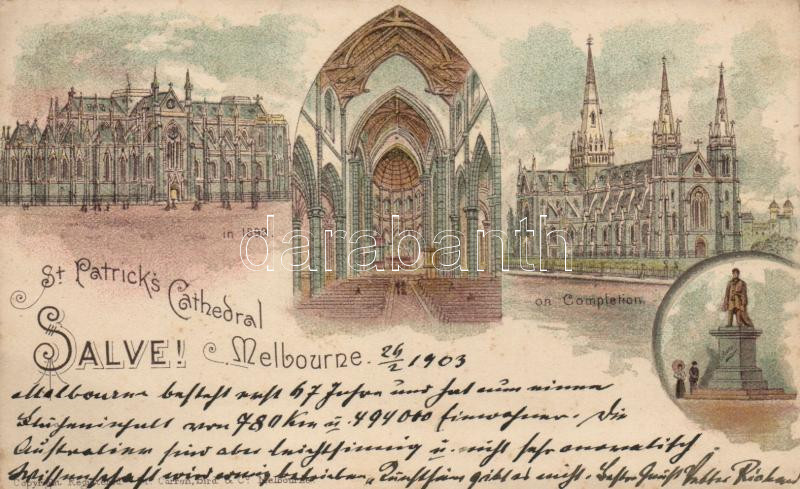 in 1893.
on Completion.
St Patrick's
Cathedral
SALVE! Melbourne. 26/2 1903
Melbourne besteht erst 67 Jahre und hat nun einen
Flächeninhalt von 780 Km u. 494000 Einwohner. Die
Australier sind aber leichtsinnig u. nicht sehr moralisch.
Wissenschaft wird wenig betrieben, gibt es nicht. Besten Gruß Vetter Richard
Copyright Carron, Bird & Co. Melbourne
darabanth